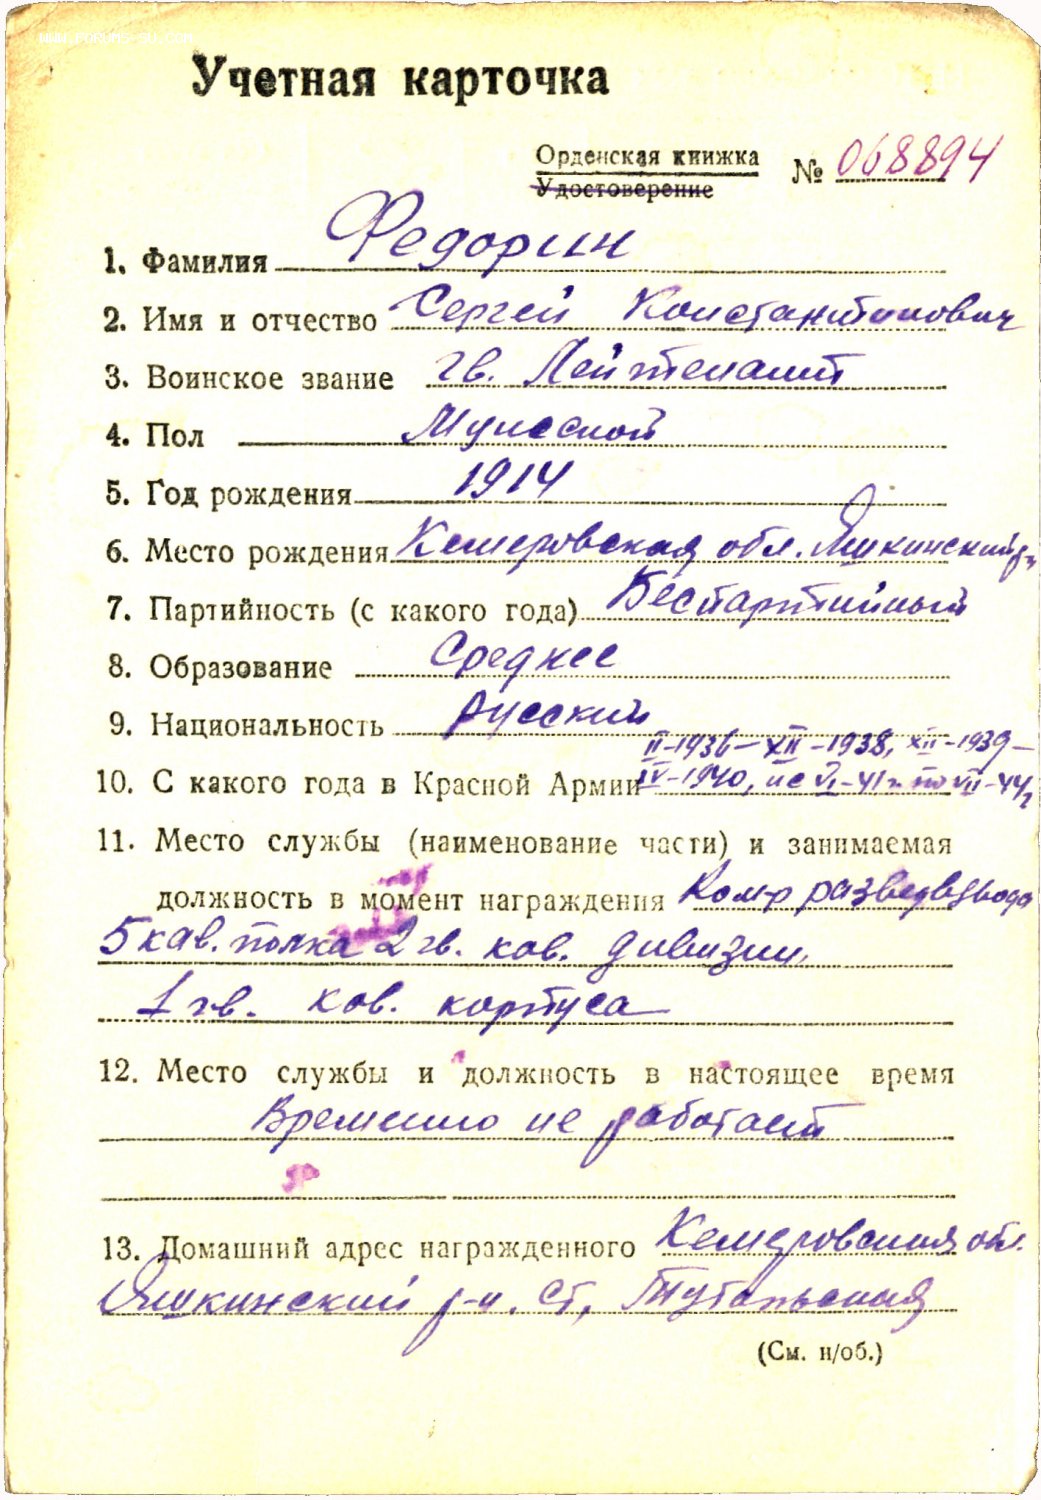 www.forums-su.com
Учетная карточка
Орденская книжка № 068894
Удостоверение
1. Фамилия Федорин
2. Имя и отчество Сергей Константинович
3. Воинское звание гв. Лейтенант
4. Пол Мужской
5. Год рождения 1914
6. Место рождения Кемеровская обл. Яшкинский р-н
7. Партийность (с какого года) Беспартийный
8. Образование Среднее
9. Национальность русский
II-1936 – XII-1938, XII-1939 –
10. С какого года в Красной Армии IV-1940, и с VI-41г. по VII-44г
11. Место службы (наименование части) и занимаемая
должность в момент награждения Ком-р разведвзвода
5 кав. полка 2 гв. кав. дивизии,
1 гв. кав. корпуса
12. Место службы и должность в настоящее время
Временно не работает
13. Домашний адрес награжденного Кемеровская обл.
Яшкинский р-н. ст. Тутальская
(См. н/об.)